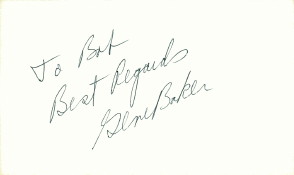 To Bob
Best Regards
Gene Baker